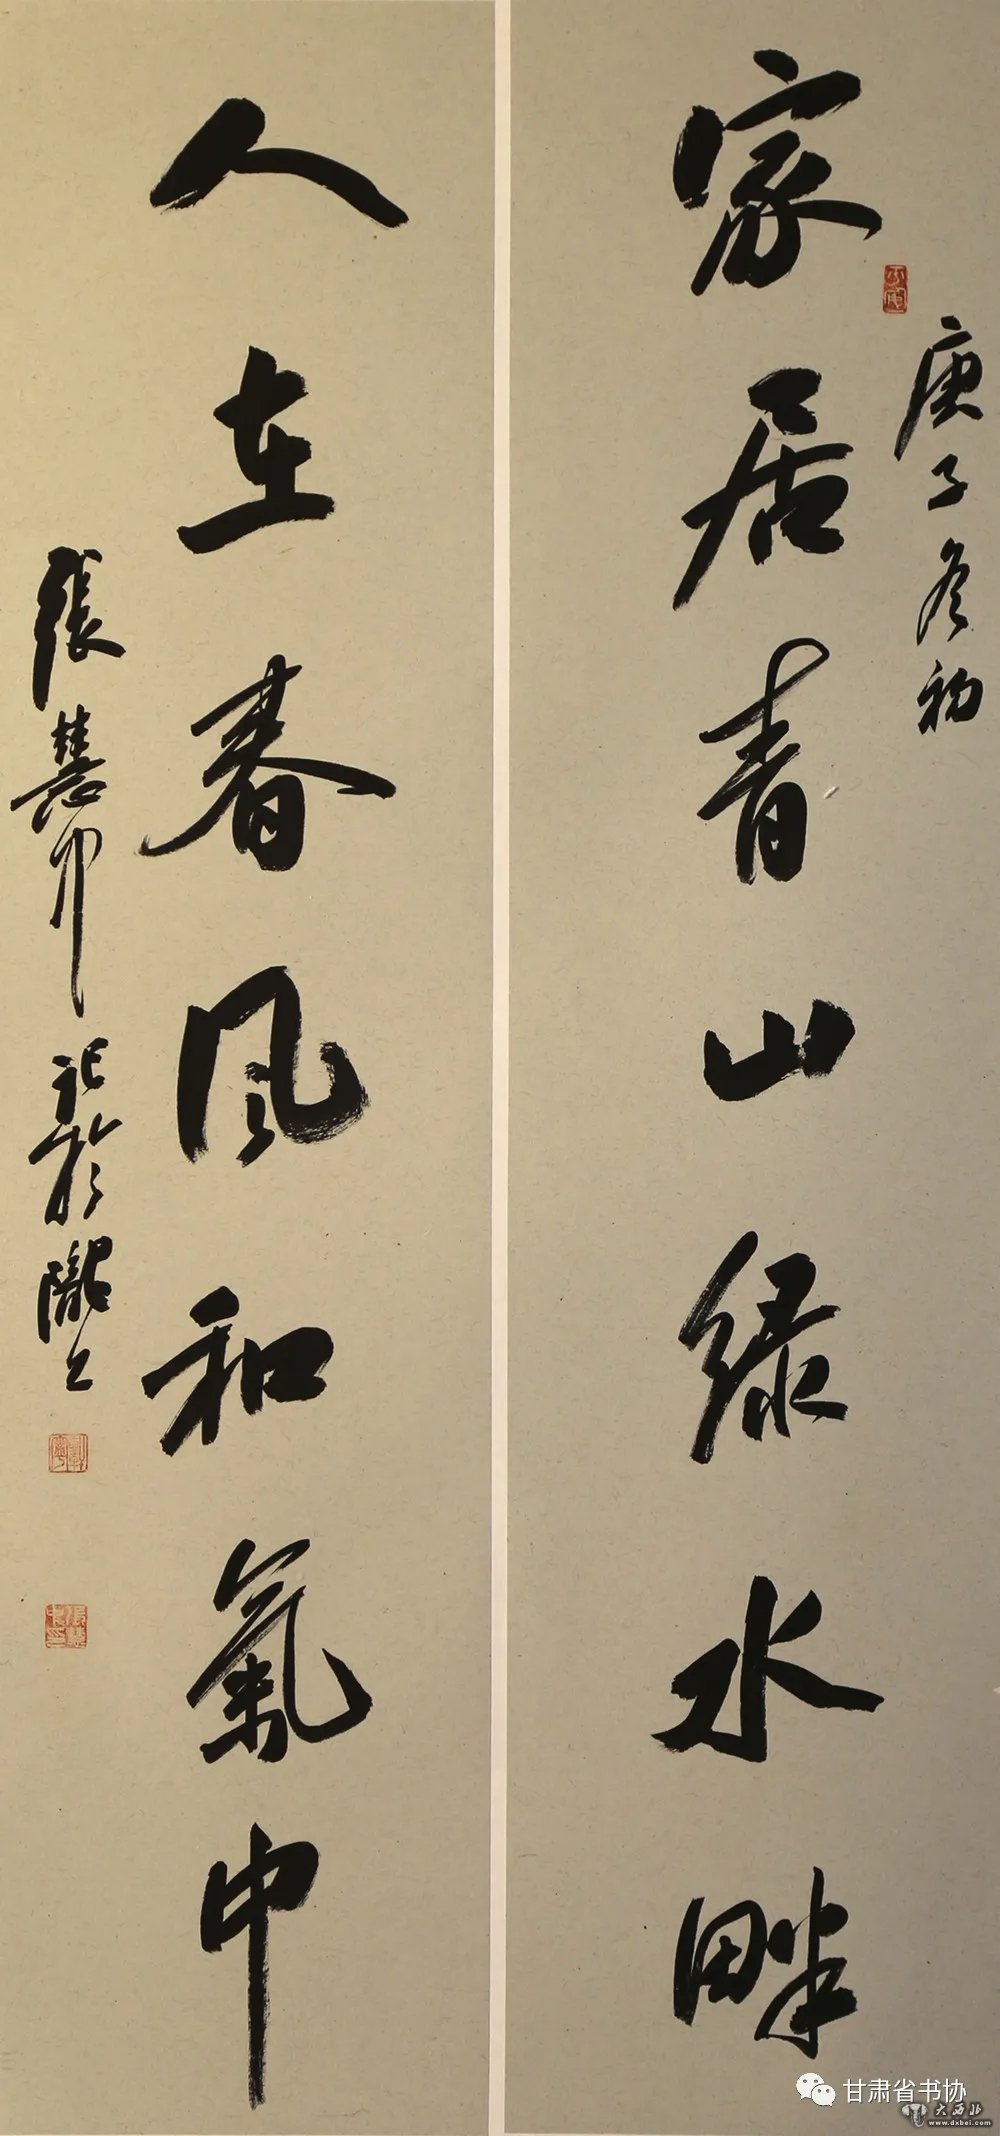 家居青山绿水畔
庚子冬初
人在春风和氣中
张慧中记於陇上
甘肃省书协
大西北
www.dxbei.com